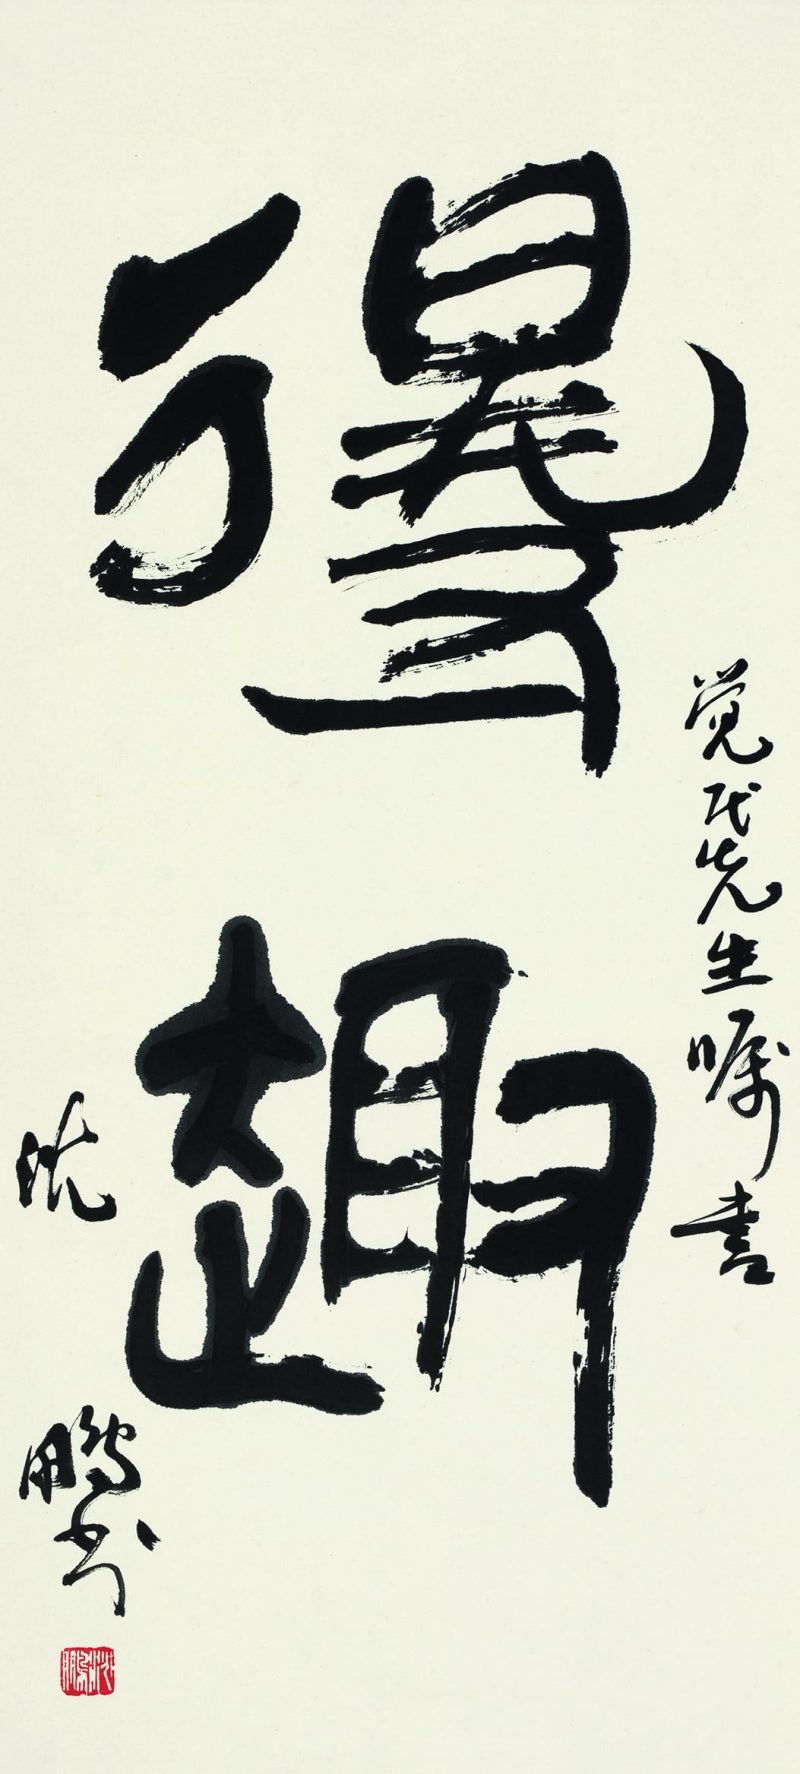 觉民先生嘱書
得趣
沈鹏书
沈鹏